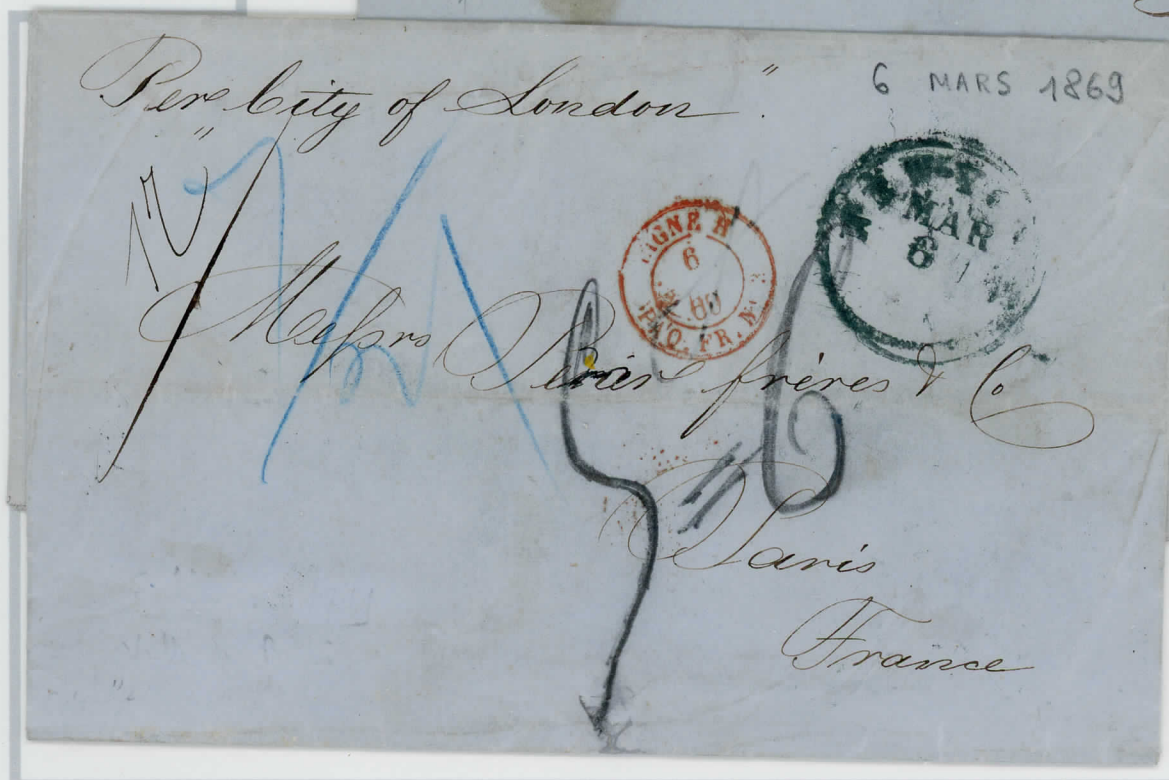 Per "City of London".
6 MARS 1869
MAR
6
LIGNE H
6
PAQ. FR. N
Messrs frères & Co
Paris
France